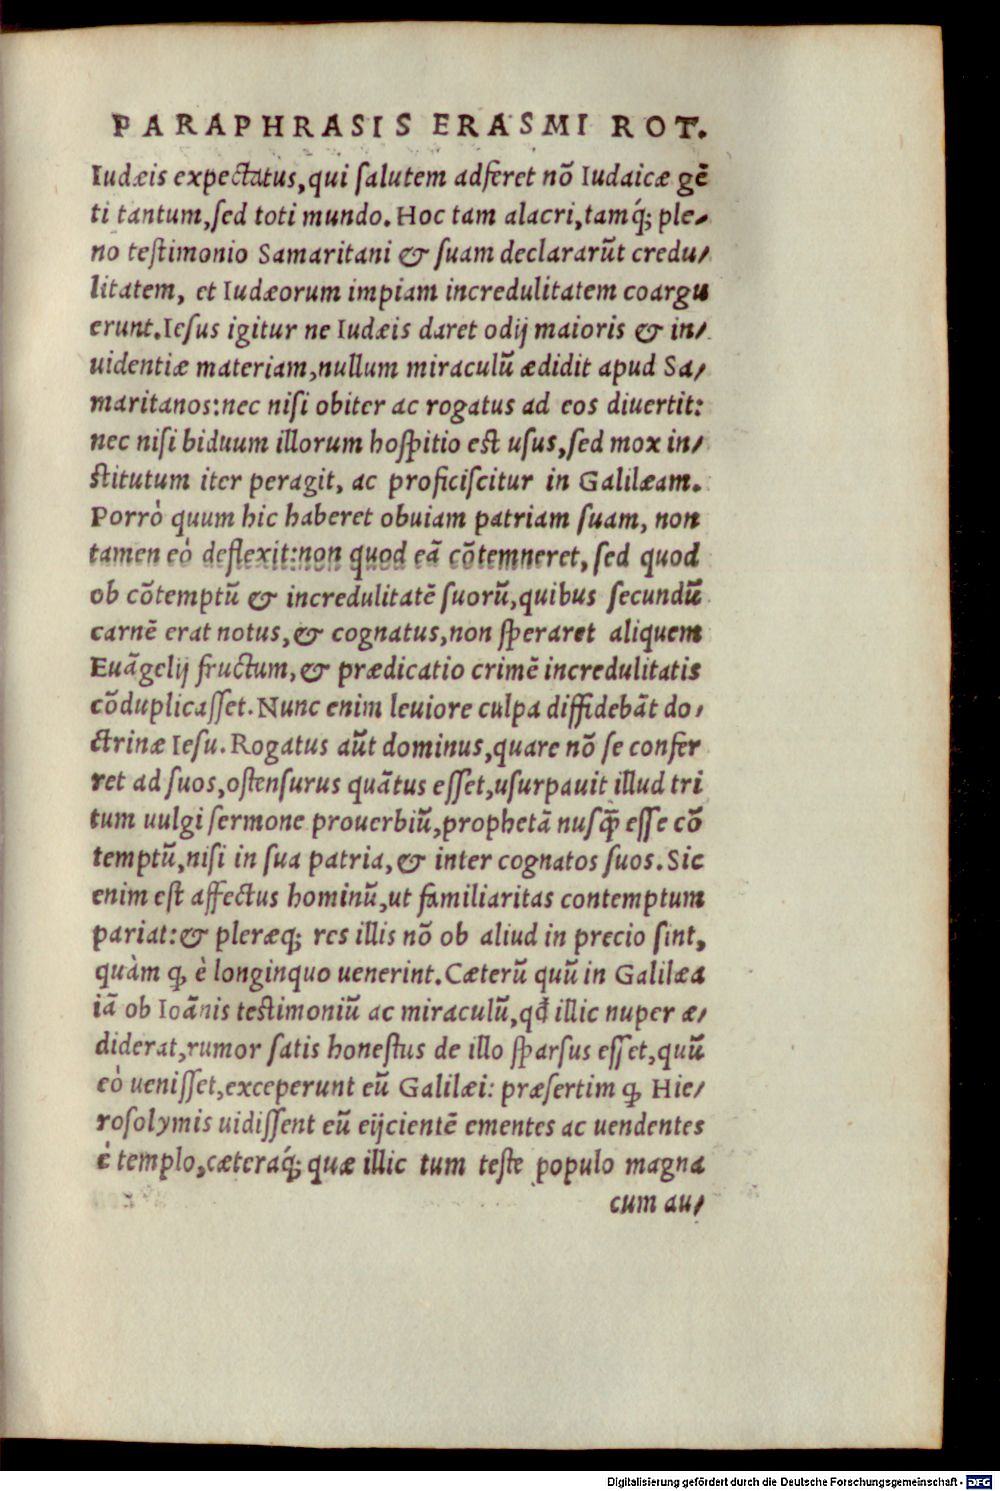 PARAPHRASIS ERASMI ROT.
Iudæis expectatus, qui ſalutem adferet nõ Iudaicæ gẽ
ti tantum, ſed toti mundo. Hoc tam alacri, tamq́; ple-
no teſtimonio Samaritani & ſuam declararũt credu/
litatem, et Iudæorum impiam incredulitatem coargu
erunt. Ieſus igitur ne Iudæis daret odij maioris & in/
uidentiæ materiam, nullum miraculũ ædidit apud Sa/
maritanos: nec niſi obiter ac rogatus ad eos diuertit:
nec niſi biduum illorum hoſpitio eſt uſus, ſed mox in/
ſtitutum iter peragit, ac proficiſcitur in Galilæam.
Porrò quum hic haberet obuiam patriam ſuam, non
tamen eò deflexit: non quod eã cõtemneret, ſed quod
ob cõtemptũ & incredulitatẽ ſuorũ, quibus ſecundũ
carnẽ erat notus, & cognatus, non ſperaret aliquem
Euãgelij fructum, & prædicatio crimẽ incredulitatis
cõduplicaſſet. Nunc enim leuiore culpa diffidebãt do/
ctrinæ Ieſu. Rogatus aũt dominus, quare nõ ſe confer
ret ad ſuos, oſtenſurus quãtus eſſet, uſurpauit illud tri
tum uulgi ſermone prouerbiũ, prophetã nuſq̃ eſſe cõ
temptũ, niſi in ſua patria, & inter cognatos ſuos. Sic
enim eſt affectus hominũ, ut familiaritas contemptum
pariat: & pleræq; res illis nõ ob aliud in precio ſint,
quàm ꝙ è longinquo uenerint. Cæterũ quũ in Galilæa
iã ob Ioãnis teſtimoniũ ac miraculũ, qđ illic nuper æ/
diderat, rumor ſatis honeſtus de illo ſparſus eſſet, quũ
eò ueniſſet, exceperunt eũ Galilæi: præſertim ꝙ Hie/
roſolymis uidiſſent eũ eijcientẽ ementes ac uendentes
è templo, cæteraq́; quæ illic tum teſte populo magna
cum au/
Digitalisierung gefördert durch die Deutsche Forschungsgemeinschaft - DFG